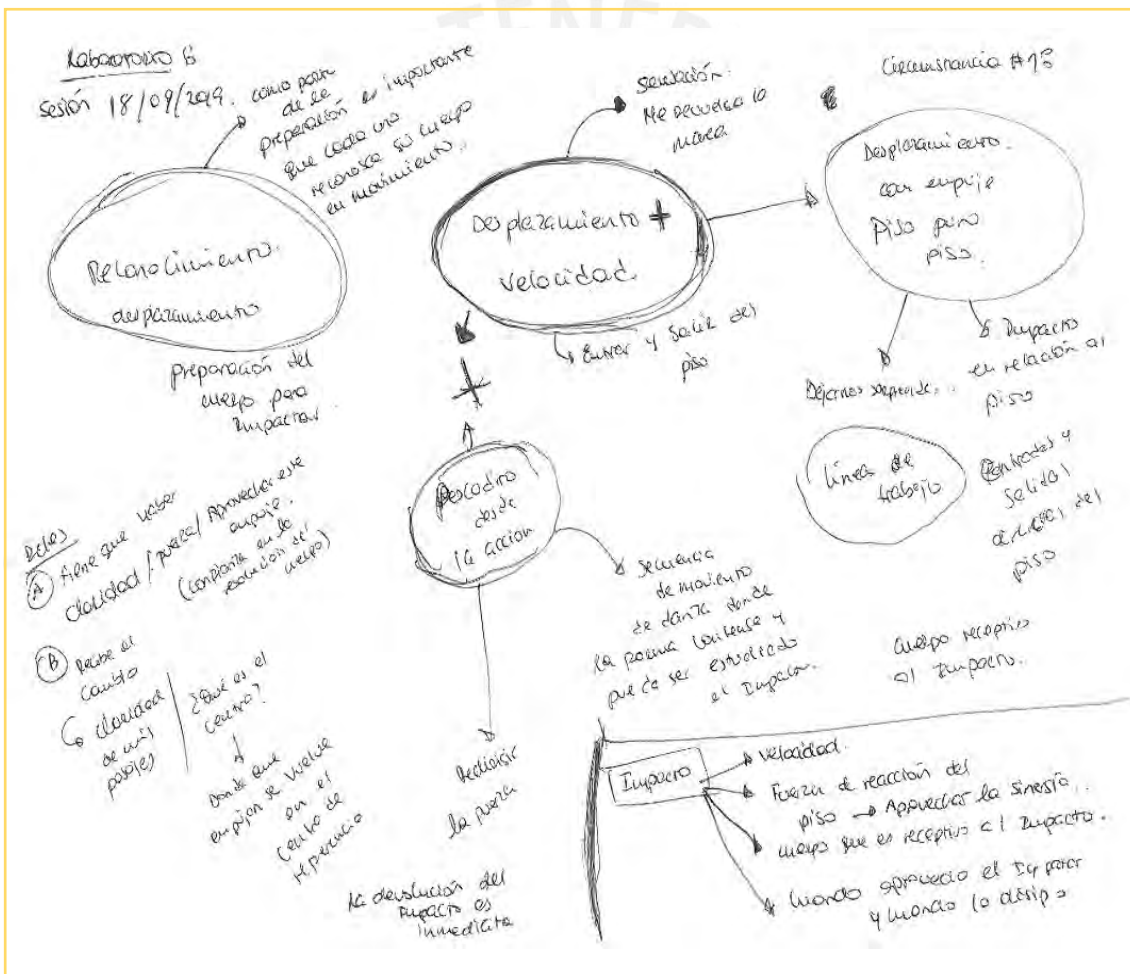 TENER
Laboratorio 6
Sesión 18/09/2019.
como parte
de la
preparación es importante
que cada uno
reconosca su cuerpo
en movimiento.
Reconocimiento.
desplazamiento
preparación del
cuerpo para
Impactar.
Sensación:
Me revuelca la
marea
Desplazamiento +
velocidad.
Entrar y salir del
piso
Circunstancia #1
Desplazamiento.
con empuje
Piso
piso.
Dejarnos
Impacto
en relación al
piso
Línea de
trabajo
Entradas y
Salidas
del
piso
desde
la acción
Secuencia
de movimiento
de danza donde
la
puede ser estudiado
el Impacto.
Roles
A
tiene que haber
claridad / fuerza / Aprovechar este
empuje.
(confianza en la
del
cuerpo)
B
Recibe el
cambio
claridad
de mis
¿Qué es el
centro?
Donde que
empujan se vuelve
en el
Centro de
la fuerza
La devolución del
Impacto es
inmediata
cuerpo receptivo
al Impacto.
Impacto
velocidad.
Fuerza de reacción del
piso → Aprovechar la
cuerpo que es receptivo al Impacto.
Cuando aprovecho el
y cuando lo disipo